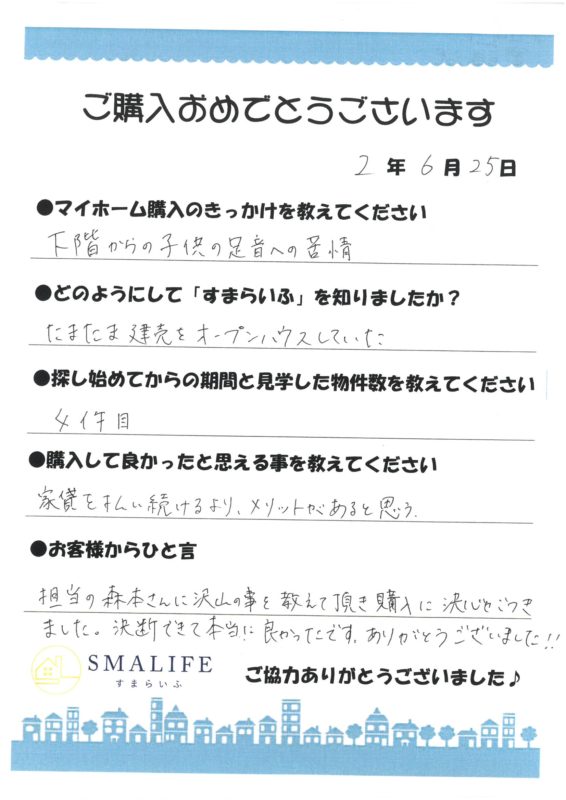 ご購入おめでとうございます
2 年 6 月 25 日
●マイホーム購入のきっかけを教えてください
下階からの子供の足音への苦情
●どのようにして「すまらいふ」を知りましたか？
たまたま建売をオープンハウスしていた
●探し始めてからの期間と見学した物件数を教えてください
4件目
●購入して良かったと思える事を教えてください
家賃をはらい続けるより、メリットがあると思う.
●お客様からひと言
担当の森本さんに沢山の事を教えて頂き購入に決心がつき
ました。決断できて本当に良かったです。ありがとうございました!!
SMALIFE
すまらいふ
ご協力ありがとうございました♪